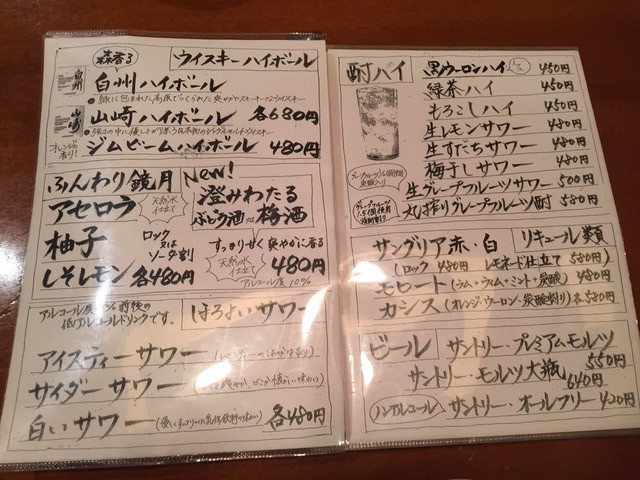 森香る
ウイスキーハイボール
白州ハイボール
山崎ハイボール 各680円
ジムビームハイボール 480円
ふんわり鏡月
アセロラ
天然水仕立て
柚子
ロック又はソーダ割
しそレモン 各480円
New!
澄みわたる
ぶどう酒 梅酒
すっきり甘く 爽やかに香る
天然水仕立て
480円
アルコール度10%
低アルコールドリンクです。
ほろよいサワー
アイスティーサワー
サイダーサワー
白いサワー
各480円
酎ハイ
黒ウーロンハイ 450円
緑茶ハイ 450円
もろこしハイ 450円
生レモンサワー 480円
生すだちサワー 480円
梅干しサワー 480円
生グレープフルーツサワー 500円
丸搾りグレープフルーツ酎 580円
サングリア赤・白
リキュール類
(ロック 480円 レモネード仕立て 580円)
モヒート(ラム・ライム・ミント・炭酸) 480円
カシス(オレンジ・ウーロン・炭酸割り)各580円
ビール
サントリー・プレミアムモルツ
550円
サントリー・モルツ大瓶
640円
ノンアルコール
サントリー・オールフリー 420円